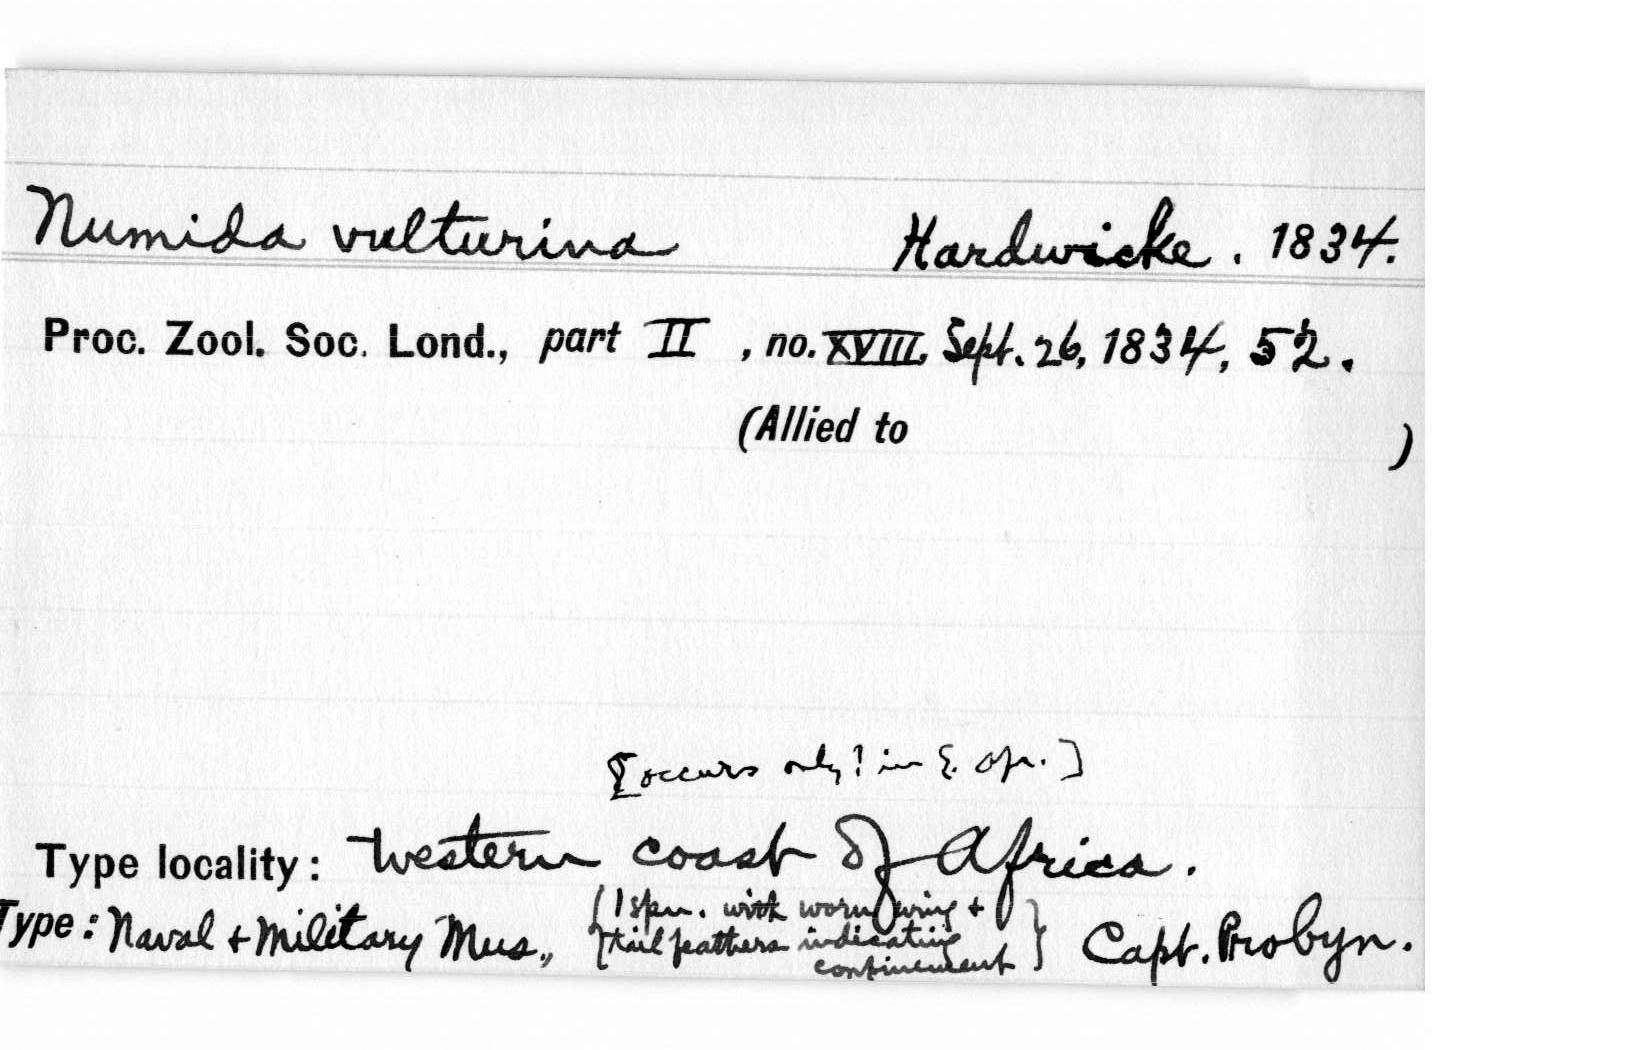 Numida vulturina Hardwicke. 1834.
Proc. Zool. Soc. Lond., part II, no. XVIII, Sept. 26, 1834, 52.
(Allied to )
[occurs only! in E. Afr.]
Type locality: Western coast of Africa.
Type: Naval + Military Mus., {1 spm. with worn wing +
tail feathers indicating
confinement} Capt. Probyn.